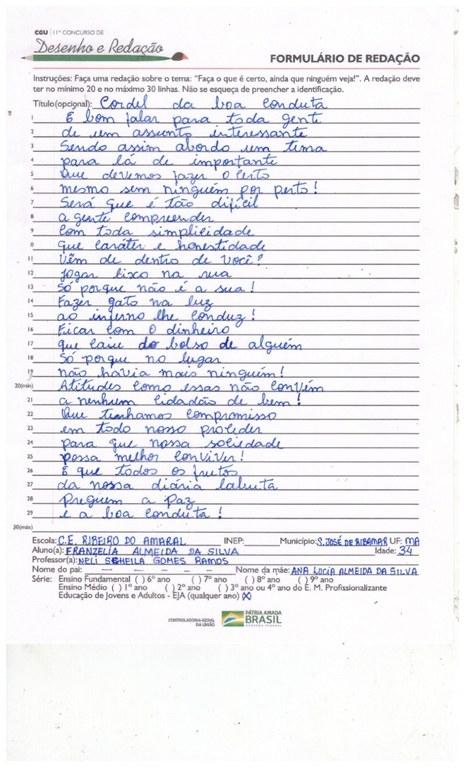 CGU | 11º CONCURSO DE
Desenho e Redação
FORMULÁRIO DE REDAÇÃO
Instruções: Faça uma redação sobre o tema: "Faça o que é certo, ainda que ninguém veja!". A redação deve
ter no mínimo 20 e no máximo 30 linhas. Não se esqueça de preencher a identificação.
Título(opcional): Cordel da boa conduta
1 É bom falar para toda gente
2 de um assunto interessante
3 Sendo assim abordo um tema
4 para lá de importante
5 Que devemos fazer o certo
6 mesmo sem ninguém por perto!
7 Será que é tão difícil
8 a gente compreender
9 Com toda simplicidade
10 que caráter e honestidade
11 Vêm de dentro de você?
12 Jogar lixo na rua
13 Só porque não é a sua!
14 Fazer gato na luz
15 ao inferno lhe conduz!
16 Ficar com o dinheiro
17 que caiu do bolso de alguém
18 Só porque no lugar
19 não havia mais ninguém!
20(mín) Atitudes como essas não convém
21 a nenhum cidadão de bem!
22 Que tenhamos compromisso
23 em todo nosso proceder
24 para que nossa sociedade
25 possa melhor conviver!
26 E que todos os frutos
27 da nossa diária labuta
28 Preguem a paz
29 e a boa conduta!
30(máx)
Escola: C.E. RIBEIRO DO AMARAL INEP: Município: S. JOSÉ DE RIBAMAR UF: MA
Aluno(a): FRANZELIA ALMEIDA DA SILVA Idade: 34
Professor(a): NELI SCHEILA GOMES RAMOS
Nome do pai: — — — — Nome da mãe: ANA LUCIA ALMEIDA DA SILVA
Série: Ensino Fundamental ( ) 6º ano ( ) 7º ano ( ) 8º ano ( ) 9º ano
Ensino Médio ( ) 1º ano ( ) 2º ano ( ) 3º ano ou 4º ano do E. M. Profissionalizante
Educação de Jovens e Adultos - EJA (qualquer ano) (X)
CONTROLADORIA-GERAL
DA UNIÃO
PÁTRIA AMADA
BRASIL
GOVERNO FEDERAL